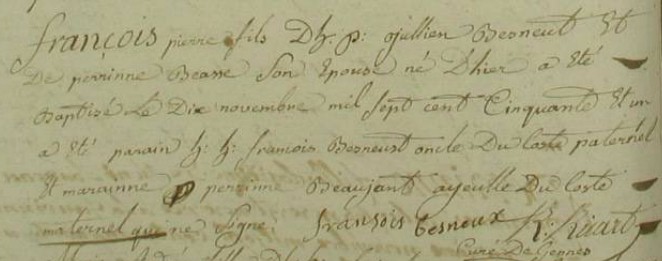 françois pierre fils Dh. p: jullien Besneust Et
De perrinne Beasse Son Epouse né D'hier a Eté
Baptizé Le Dix novembre mil Sept cent Cinquante Et un
a Eté parain h: h: francois Besneust oncle Du Costé paternel
Et marainne perrinne Beaujant ayeulle Du Costé
maternel qui ne Signe. fransois besneux
Curé De Gennes